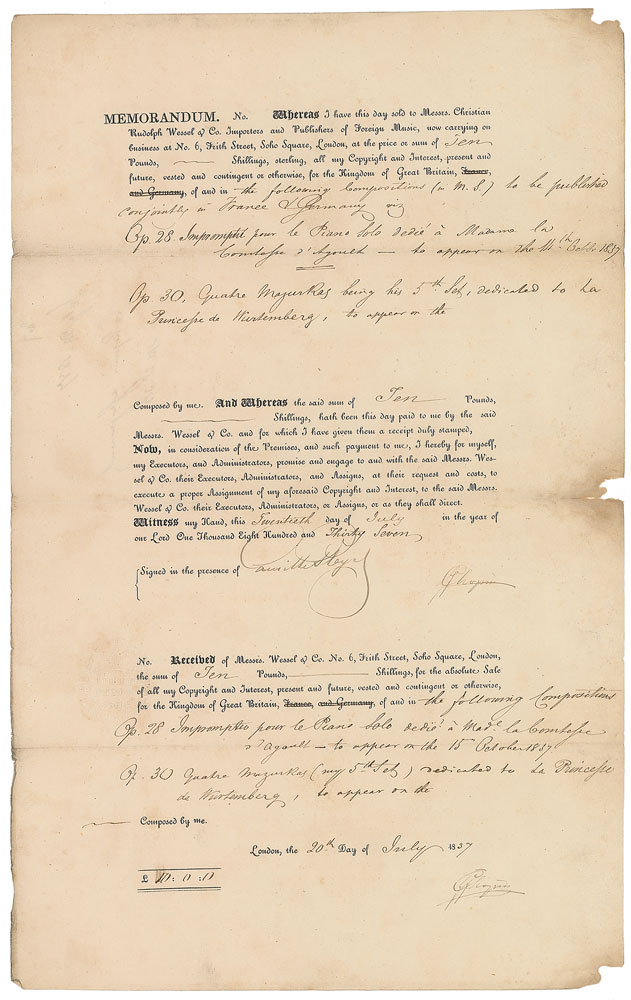 MEMORANDUM. No. Whereas I have this day sold to Messrs. Christian
Rudolph Wessel & Co. Importers and Publishers of Foreign Music, now carrying on
business at No. 6, Frith Street, Soho Square, London, at the price or sum of Ten
Pounds, — Shillings, sterling, all my Copyright and Interest, present and
future, vested and contingent or otherwise, for the Kingdom of Great Britain, France,
and Germany, of and in the following Compositions (in M.S.) to be published
conjointly in France & Germany viz
Op. 28 Impromptu pour le Piano Solo dedié à Madame la
Comtesse d'Agoult — to appear on the 14th Octb. 1837
Op. 30, Quatre Mazurkas being his 5th Set, dedicated to La
Princesse de Würtemberg, to appear on the
Composed by me. And Whereas the said sum of Ten Pounds,
— Shillings, hath been this day paid to me by the said
Messrs. Wessel & Co. and for which I have given them a receipt duly stamped,
Now, in consideration of the Premises, and such payment to me, I hereby for myself,
my Executors, and Administrators, promise and engage to and with the said Messrs. Wes-
sel & Co. their Executors, Administrators, and Assigns, at their request and costs, to
execute a proper Assignment of my aforesaid Copyright and Interest, to the said Messrs.
Wessel & Co. their Executors, Administrators, or Assigns, or as they shall direct.
Witness my Hand, this Twentieth day of July in the year of
our Lord One Thousand Eight Hundred and Thirty Seven
Signed in the presence of Camille Pleyel
Chopin
No. Received of Messrs. Wessel & Co. No. 6, Frith Street, Soho Square, London,
the sum of Ten Pounds, — Shillings, for the absolute Sale
of all my Copyright and Interest, present and future, vested and contingent or otherwise,
for the Kingdom of Great Britain, France, and Germany, of and in the following Compositions
Op. 28 Impromptu pour le Piano Solo dedié à Made. la Comtesse
d'Agoult — to appear on the 15 October 1837
Op. 30 Quatre Mazurkas (my 5th Set) dedicated to La Princesse
de Würtemberg, to appear on the
— Composed by me.
London, the 20th Day of July 1837
£ 10:0:0
Chopin